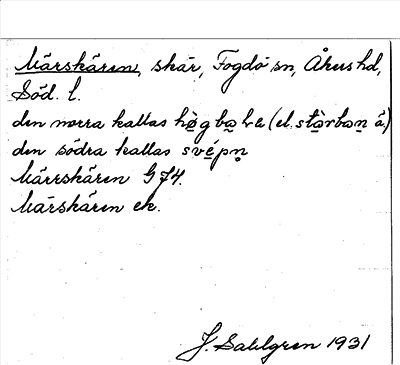 Märskären, skär, Fogdö sn, Åkers hd,
Söd. l.
den norra kallas hø̀gba̱ḷṇa (el. stò̱rba̱n ä.)
den södra kallas své̱pn̥
Märrskären G 74.
Märskären ek.
J. Sahlgren 1931